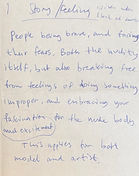 1 Story/feeling
People being brave, and facing
their fears. Both the nudity
itself, but also breaking free
from feelings of doing something
improper, and embracing your
fascination for the nude body
and excitement.
This applies for both
model and artist.